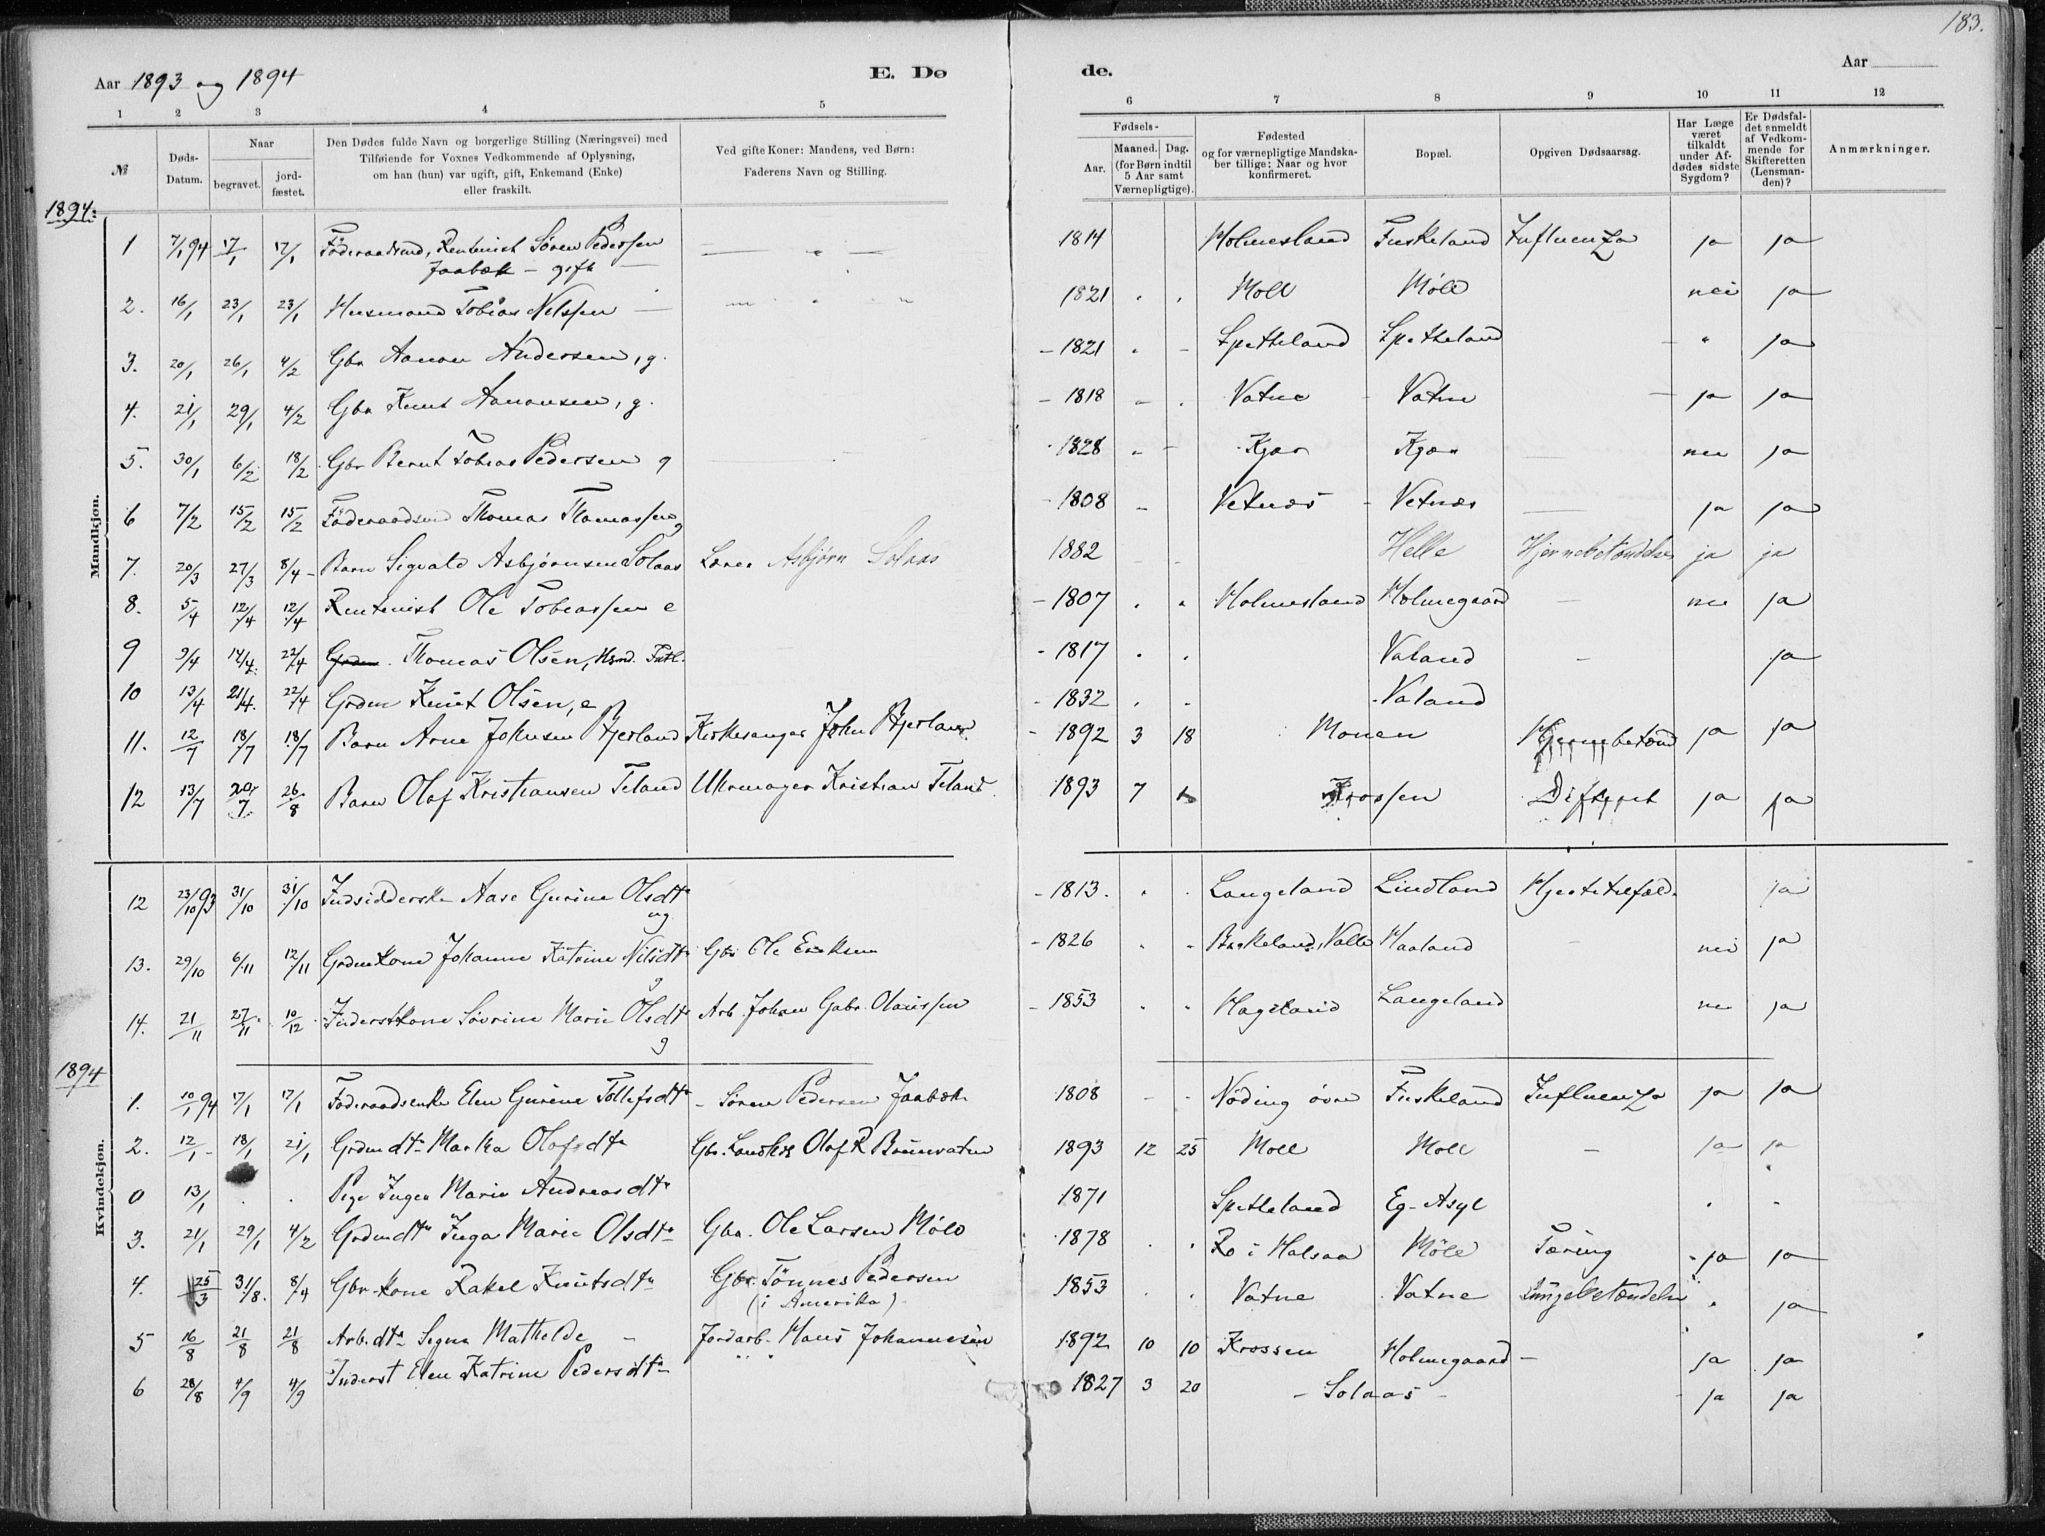 183.
Aar 1893 og 1894 E. Dø de. Aar
1 2 3 4 5 6 7 8 9 10 11 12
№ Døds-Datum. Naar begravet. jordfæstet. Den Dødes fulde Navn og borgerlige Stilling (Næringsvei) med Tilføiende for Voxnes Vedkommende af Oplysning, om han (hun) var ugift, gift, Enkemand (Enke) eller fraskilt. Ved gifte Koner: Mandens, ved Børn: Faderens Navn og Stilling. Fødsels- Aar. Maaned. Dag. (for Børn indtil 5 Aar samt Værnepligtige). Fødested og for værnepligtige Mandskaber tillige: Naar og hvor konfirmeret. Bopæl. Opgiven Dødsaarsag. Har Læge været tilkaldt under Afdødes sidste Sygdom? Er Dødsfaldet anmeldt af Vedkommende for Skifteretten (Lensmanden)? Anmærkninger.
1894:
Mandkjøn.
1 7/1 94 17/1 17/1 Föderaadsmd, Rentenist Sören Pedersen 1814 Holmesland Fuskeland Influenza ja ja
Jaabæk - gift
2. 16/1 23/1 23/1 Husmand Tobias Nilssen 1821 Moll Möll nei ja
3. 20/1 26/1 4/2 Gbr Aanon Andersen, g. 1821 Spetteland Spetteland " ja
4. 21/1 29/1 4/2 Gbr Knut Aanonsen, g. 1818 Vatne Vatne ja ja
5. 30/1 6/2 18/2 Gbr Bernt Tobias Pedersen g 1828 Kjær Kjær nei ja
6 7/2 15/2 15/2 Föderaadsmd Thomas Thomassen g 1808 Vetnes Vetnes ja ja
7. 20/3 27/3 8/4 Barn Sigvald Asbjørnsen Solaas Lærer Asbjørn Solaas 1882 Helle Hjernebetændelse ja ja
8. 5/4 12/4 12/4 Rentenist Ole Tobiassen e 1807 Holmesland Holmegaard nei ja
9 9/4 14/4. 22/4 Thomas Olsen, Hsmd. Fatl. 1817 Valand ja
10 13/4 21/4. 22/4 Grdm Knut Olsen, e 1832 Valand
11. 12/7 18/7 18/7 Barn Arne Johnsen Bjerland Kirkesanger John Bjerland 1892 3 18 Monen Hjernebetænd ja ja
12 13/7 20/7 26/8 Barn Olaf Kristiansen Teland Uhrmager Kristian Teland. 1893 7 Krossen Difterit ja ja
12 23/10 93 31/10 31/10 Indsidderske Aase Gurine Olsdtr ug 1813. Langeland Lindland Hjertetilfæld. ja
13. 29/10 6/11 12/11 Grdmkone Johanne Katrine Nilsdtr g Gbr Ole Eriksen 1826 Birkeland, Valle Haaland nei ja
14. 21/11 27/11 10/12 Inderstkone Sövrine Marie Olsdtr g Arb. Johan Gabr. Olaussen 1853 Hageland Langeland nei ja
1894
Kvindekjøn.
1. 10/1 94 17/1 17/1 Föderaadsenke Elen Gurine Tollefsdtr Sören Pedersen Jaabæk 1808 Nöding övre Fuskeland Influenza ja ja
2. 12/1 18/1 21/1 Grdmdtr Martha Olafsdtr Gbr. Olaf R 1893 12 25 Moll Möll ja ja
0 13/1 Pige Inga Marie Andreasdtr 1871 Spetteland Eg-Asyl
3. 21/1 29/1 4/2 Grdmdtr Inga Marie Olsdtr Gbr. Ole Larsen Möll 1878 Ro i Halsaa Möll Tæring ja ja
4. 25/3 31/8. 8/4 Gbr kone Rakel Knutsdtr Gbr. Tönnes Pedersen 1853 Vatne Vatne Lungebetændelse " ja
(i Amerika)
5 16/8 21/8 21/8 Arb.dtr Signe Mathilde Jordarb. Hans Johannesen 1892 10 10 Krossen Holmegaard ja ja
6 28/8 4/9 4/9 Inderst Elen Katrine Pedersdtr 1827 3 20 Solaas ja ja